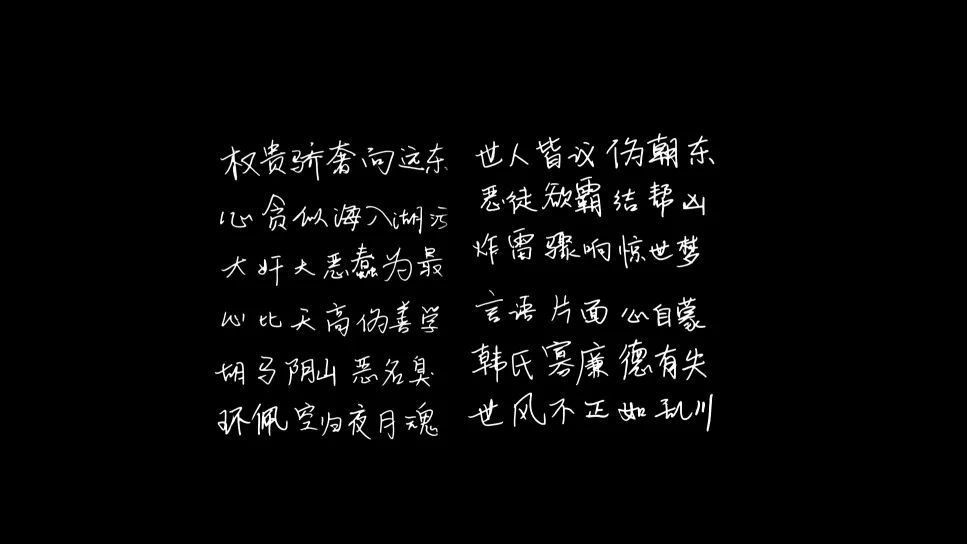 权贵骄奢向远东 世人皆议伪朝东
心贪似海入湖污 恶徒欲霸结帮凶
大奸大恶蠢为最 炸雷骤响惊世梦
心比天高伪善学 言语片面心自蒙
胡马阴山恶名臭 韩氏寡廉德有失
环佩空归夜月魂 世风不正如乱川